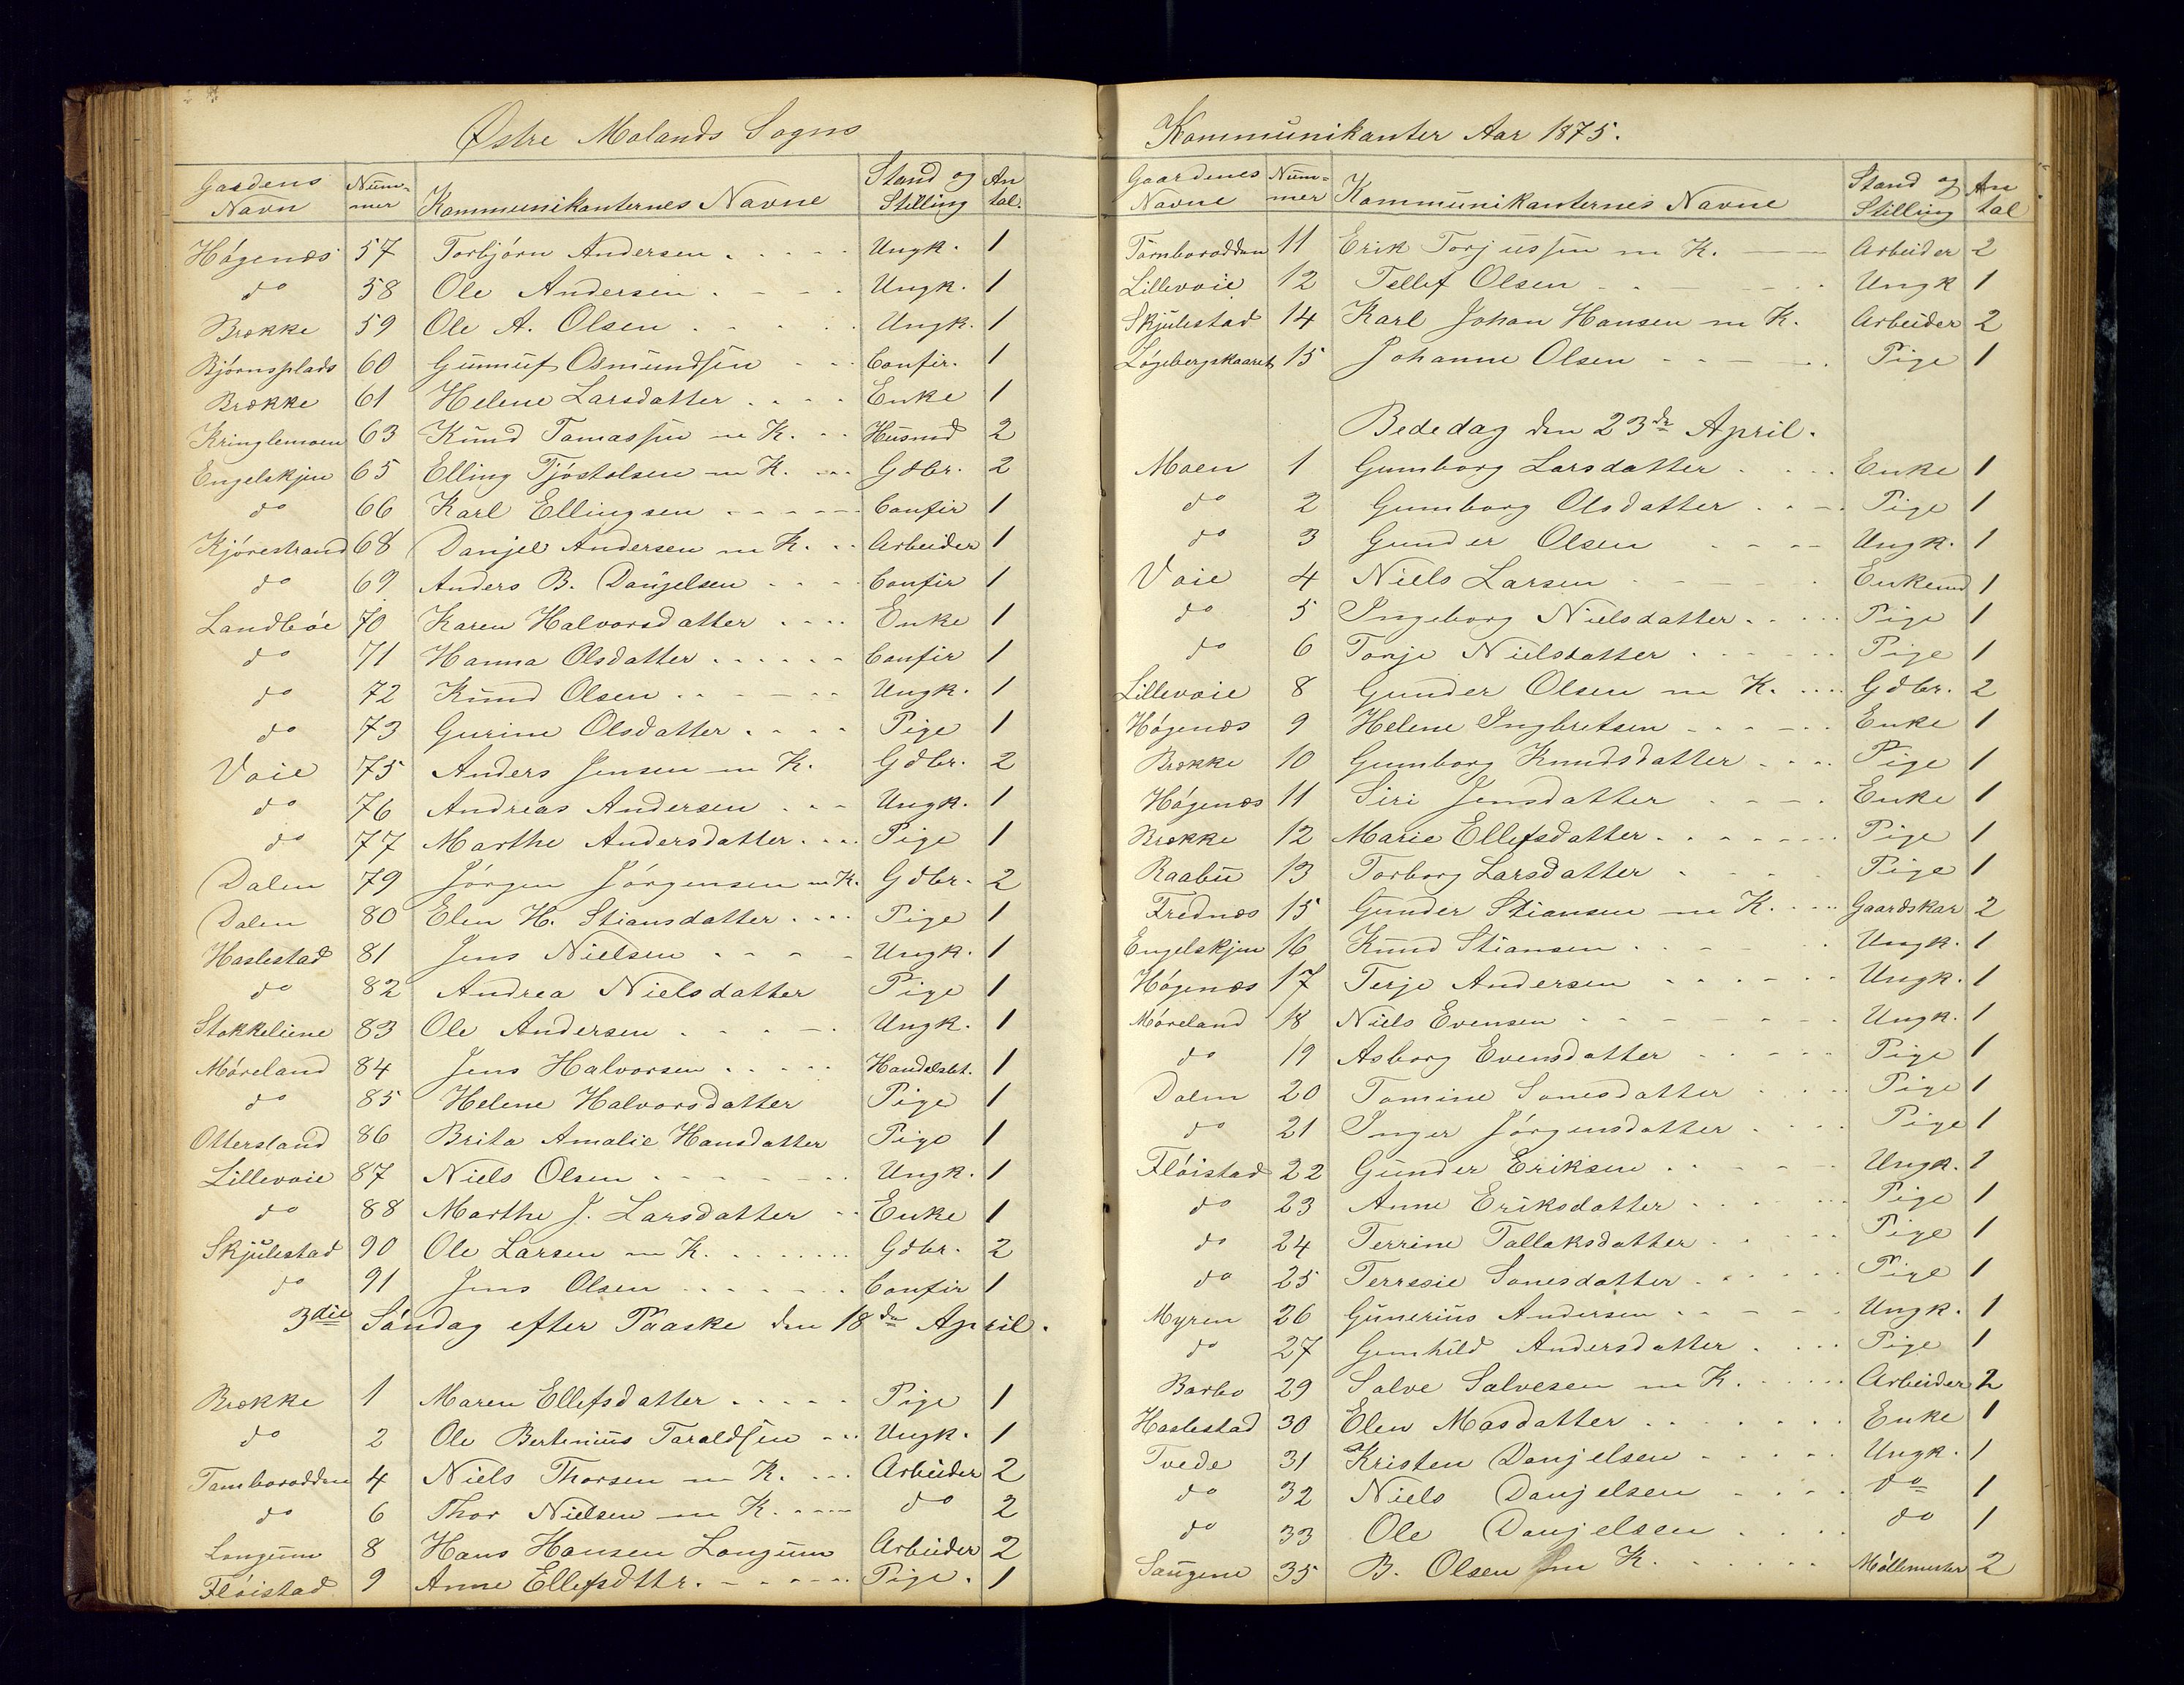 Østre Molands Sogns
Gaardens Navn | Num-mer | Kommunikanternes Navne | Stand og Stilling | An tal.
Høgenæs 57 Torbjørn Andersen Ungk. 1
do 58 Ole Andersen Ungk. 1
Brække 59 Ole A. Olsen Ungk. 1
Bjørnsplads 60 Gunnuf Osmundsen Confir. 1
Brække 61 Helene Larsdatter Enke 1
Kringlemoen 63 Knud Tomassen m K. Husmd 2
Engelskjen 65 Elling Tjøstolsen m K. Gdbr. 2
do 66 Karl Ellingsen Confir 1
Kjørestrand 68 Danjel Andersen m K. Arbeider 1
do 69 Anders B. Danjelsen Confir 1
Landbøe 70 Karen Halvorsdatter Enke 1
do 71 Hanna Olsdatter Confir 1
do 72 Knud Olsen Ungk. 1
do 73 Gurine Olsdatter Pige 1
Voie 75 Anders Jensen m K. Gdbr. 2
do 76 Andreas Andersen Ungk. 1
do 77 Marthe Andersdatter Pige 1
Dalen 79 Jørgen Jørgensen m K. Gdbr. 2
Dalen 80 Elen H. Stiansdatter Pige 1
Haslestad 81 Jens Nielsen Ungk. 1
do 82 Andrea Nielsdatter Pige 1
Stokkeliene 83 Ole Andersen Ungk. 1
Møreland 84 Jens Halvorsen Handelsbt. 1
do 85 Helene Halvorsdatter Pige 1
Ottersland 86 Brita Amalie Hansdatter Pige 1
Lillevoie 87 Niels Olsen Ungk. 1
do 88 Marthe J. Larsdatter Enke 1
Skjulestad 90 Ole Larsen m K. Gdbr. 2
do 91 Jens Olsen Confir 1
3die Søndag efter Paaske den 18de April.
Brække 1 Maren Ellefsdatter Pige 1
do 2 Ole Bertinius Taraldsen Ungk. 1
Tamborodden 4 Niels Thorsen m K. Arbeider 2
do 6 Thor Nielsen m K. do 2
Longum 8 Hans Hansen Longum Arbeider 2
Fløistad 9 Anne Ellefsdttr. Pige. 1
Kommunikanter Aar 1875.
Gaardenes Navne | Num-mer | Kommunikanternes Navne | Stand og Stilling | An tal
Tamborodden 11 Erik Torjussen m K. Arbeider 2
Lillevoie 12 Tellef Olsen Ungk 1
Skjulestad 14 Karl Johan Hansen m K. Arbeider 2
Løgebergskaaret 15 Johanne Olsen Pige 1
Bededag den 23de April.
Moen 1 Gunborg Larsdatter Enke 1
do 2 Gunborg Olsdatter Pige 1
do 3 Gunder Olsen Ungk. 1
Voie 4 Niels Larsen Enkemd 1
do 5 Ingeborg Nielsdatter Pige 1
do 6 Tonje Nielsdatter Pige 1
Lillevoie 8 Gunder Olsen m K. Gdbr. 2
Høgenæs 9 Helene Ingbretsen Enke 1
Brække 10 Gunborg Knudsdatter Pige 1
Høgenæs 11 Siri Jensdatter Enke 1
Brække 12 Marie Ellefsdatter Pige 1
Raabu 13 Torborg Larsdatter Pige 1
Frednæs 15 Gunder Stiansen m K. Gaardskar 2
Engelskjen 16 Knud Stiansen Ungk. 1
Høgenæs 17 Terje Andersen Ungk. 1
Møreland 18 Niels Evensen Ungk. 1
do 19 Asborg Evensdatter Pige 1
Dalen 20 Tomine Sonesdatter Pige 1
do 21 Inger Jørgensdatter Pige 1
Fløistad 22 Gunder Eriksen Ungk. 1
do 23 Anne Eriksdatter Pige 1
do 24 Terrine Tallaksdatter Pige 1
do 25 Terresie Sonesdatter Pige 1
Myren 26 Gunerius Andersen Ungk. 1
do 27 Gunhild Andersdatter Pige 1
Barbo 29 Salve Salvesen m K. Arbeider 2
Haslestad 30 Elen Masdatter Enke 1
Tvede 31 Kristen Danjelsen Ungk. 1
do 32 Niels Danjelsen do 1
do 33 Ole Danjelsen do 1
Saugene 35 B. Olsen m K. Møllemester 2